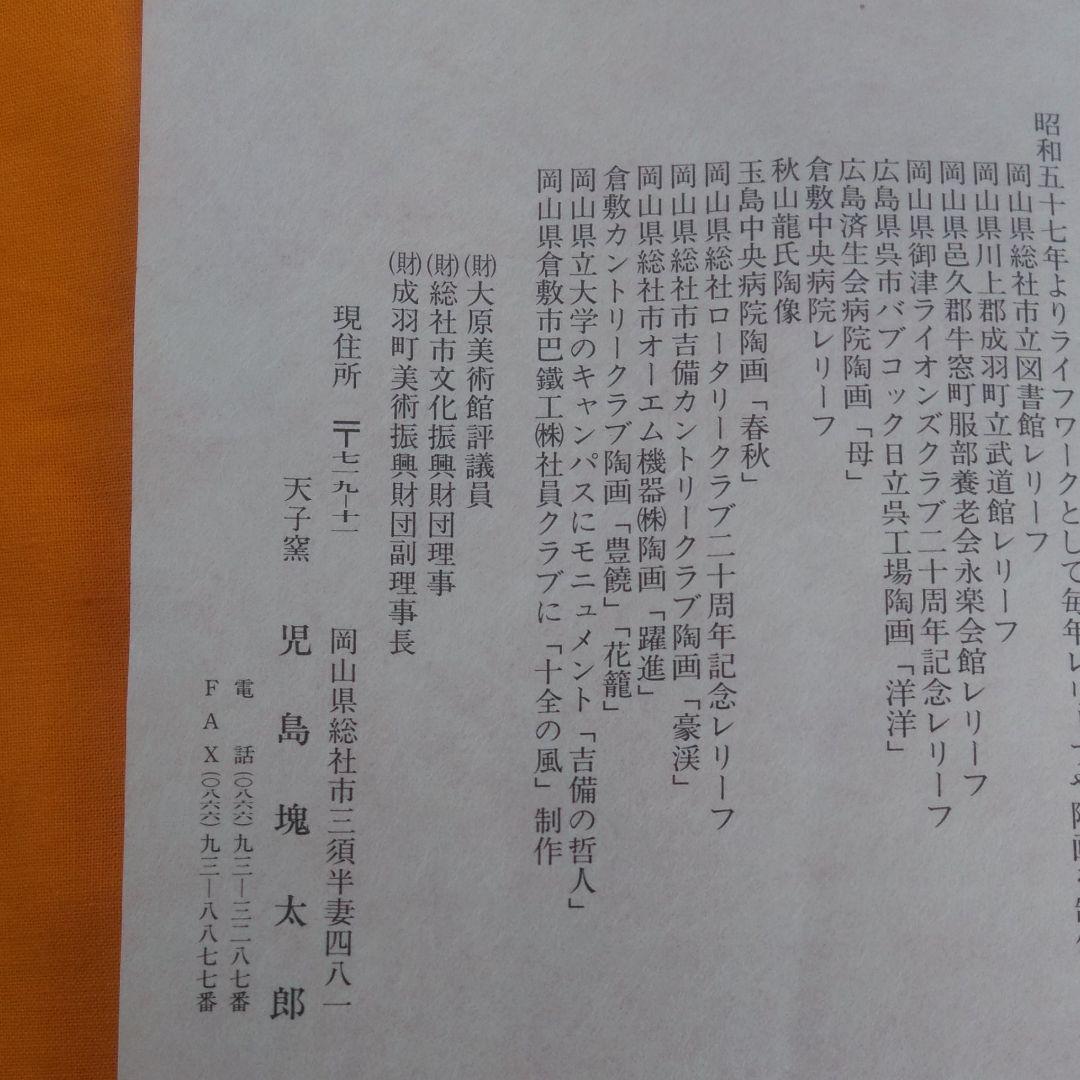 昭和五十七年よりライフワークとして毎年レリーフや陶画を
岡山県総社市立図書館レリーフ
岡山県川上郡成羽町立武道館レリーフ
岡山県邑久郡牛窓町服部養老会永楽会館レリーフ
岡山県御津ライオンズクラブ二十周年記念レリーフ
広島県呉市バブコック日立呉工場陶画「洋洋」
広島済生会病院陶画「母」
倉敷中央病院レリーフ
秋山龍氏陶像
玉島中央病院陶画「春秋」
岡山県総社ロータリークラブ二十周年記念レリーフ
岡山県総社市吉備カントリークラブ陶画「豪渓」
岡山県総社市オーエム機器㈱陶画「躍進」
倉敷カントリークラブ陶画「豊饒」「花籠」
岡山県立大学のキャンパスにモニュメント「吉備の哲人」
岡山県倉敷市巴鐵工㈱社員クラブに「十全の風」制作
㈶大原美術館評議員
㈶総社市文化振興財団理事
㈶成羽町美術振興財団副理事長
現住所 〒七一九―十一
岡山県総社市三須半妻四八一
天子窯 児島塊太郎
電話(〇八六六)九三―三二八七番
FAX(〇八六六)九三―八八七七番